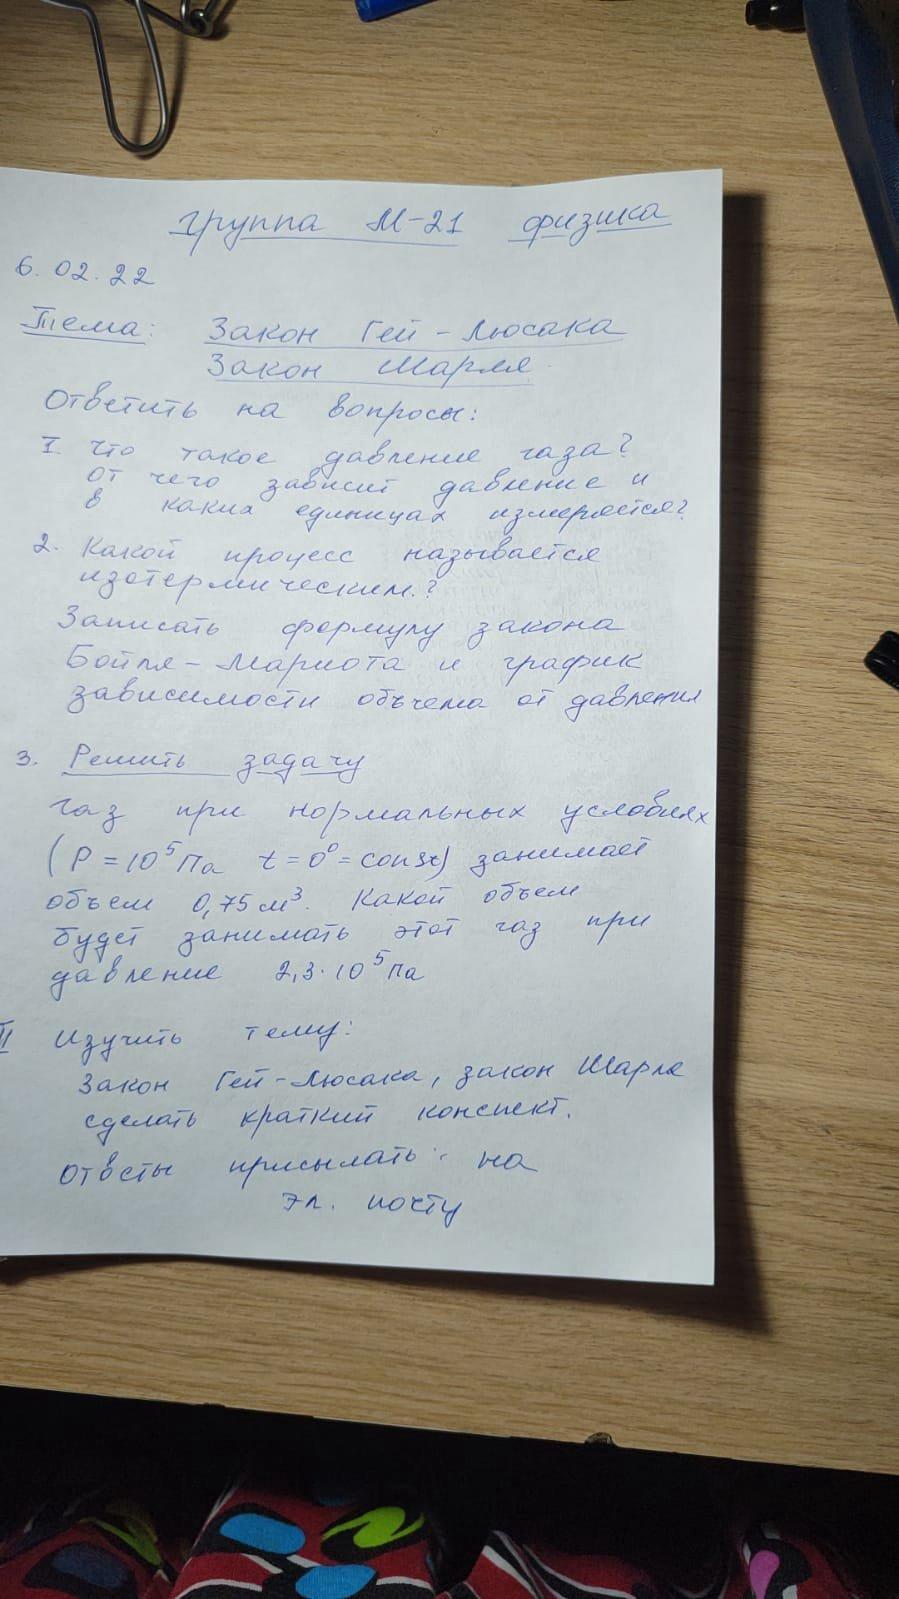 Группа М-21 физика
6.02.22
Тема: Закон Гей-Люсака
Закон Шарля
Ответить на вопросы:
I. Что такое давление газа?
от чего зависит давление и
в каких единицах измеряется?
2. Какой процесс называется
изотермическим.?
Записать формулу закона
Бойля-Мариота и график
зависимости объема от давления
3. Решить задачу
Газ при нормальных условиях
(P = 10⁵ Па t = 0° = const) занимает
объем 0,75 м³. Какой объем
будет занимать этот газ при
давление 2,3·10⁵ Па
II Изучить тему:
Закон Гей-Люсака, закон Шарля
сделать краткий конспект.
Ответы присылать на
эл. почту